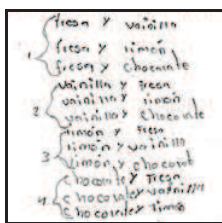 fresa y vainilla
1 fresa y limón
fresa y chocolate
vainilla y fresa
2 vainilla y limón
vainilla y chocolate
limón y fresa
3 limón y vainilla
limón y chocolat
chocolate y fresa
4 chocolate y vainilla
chocolate y limón